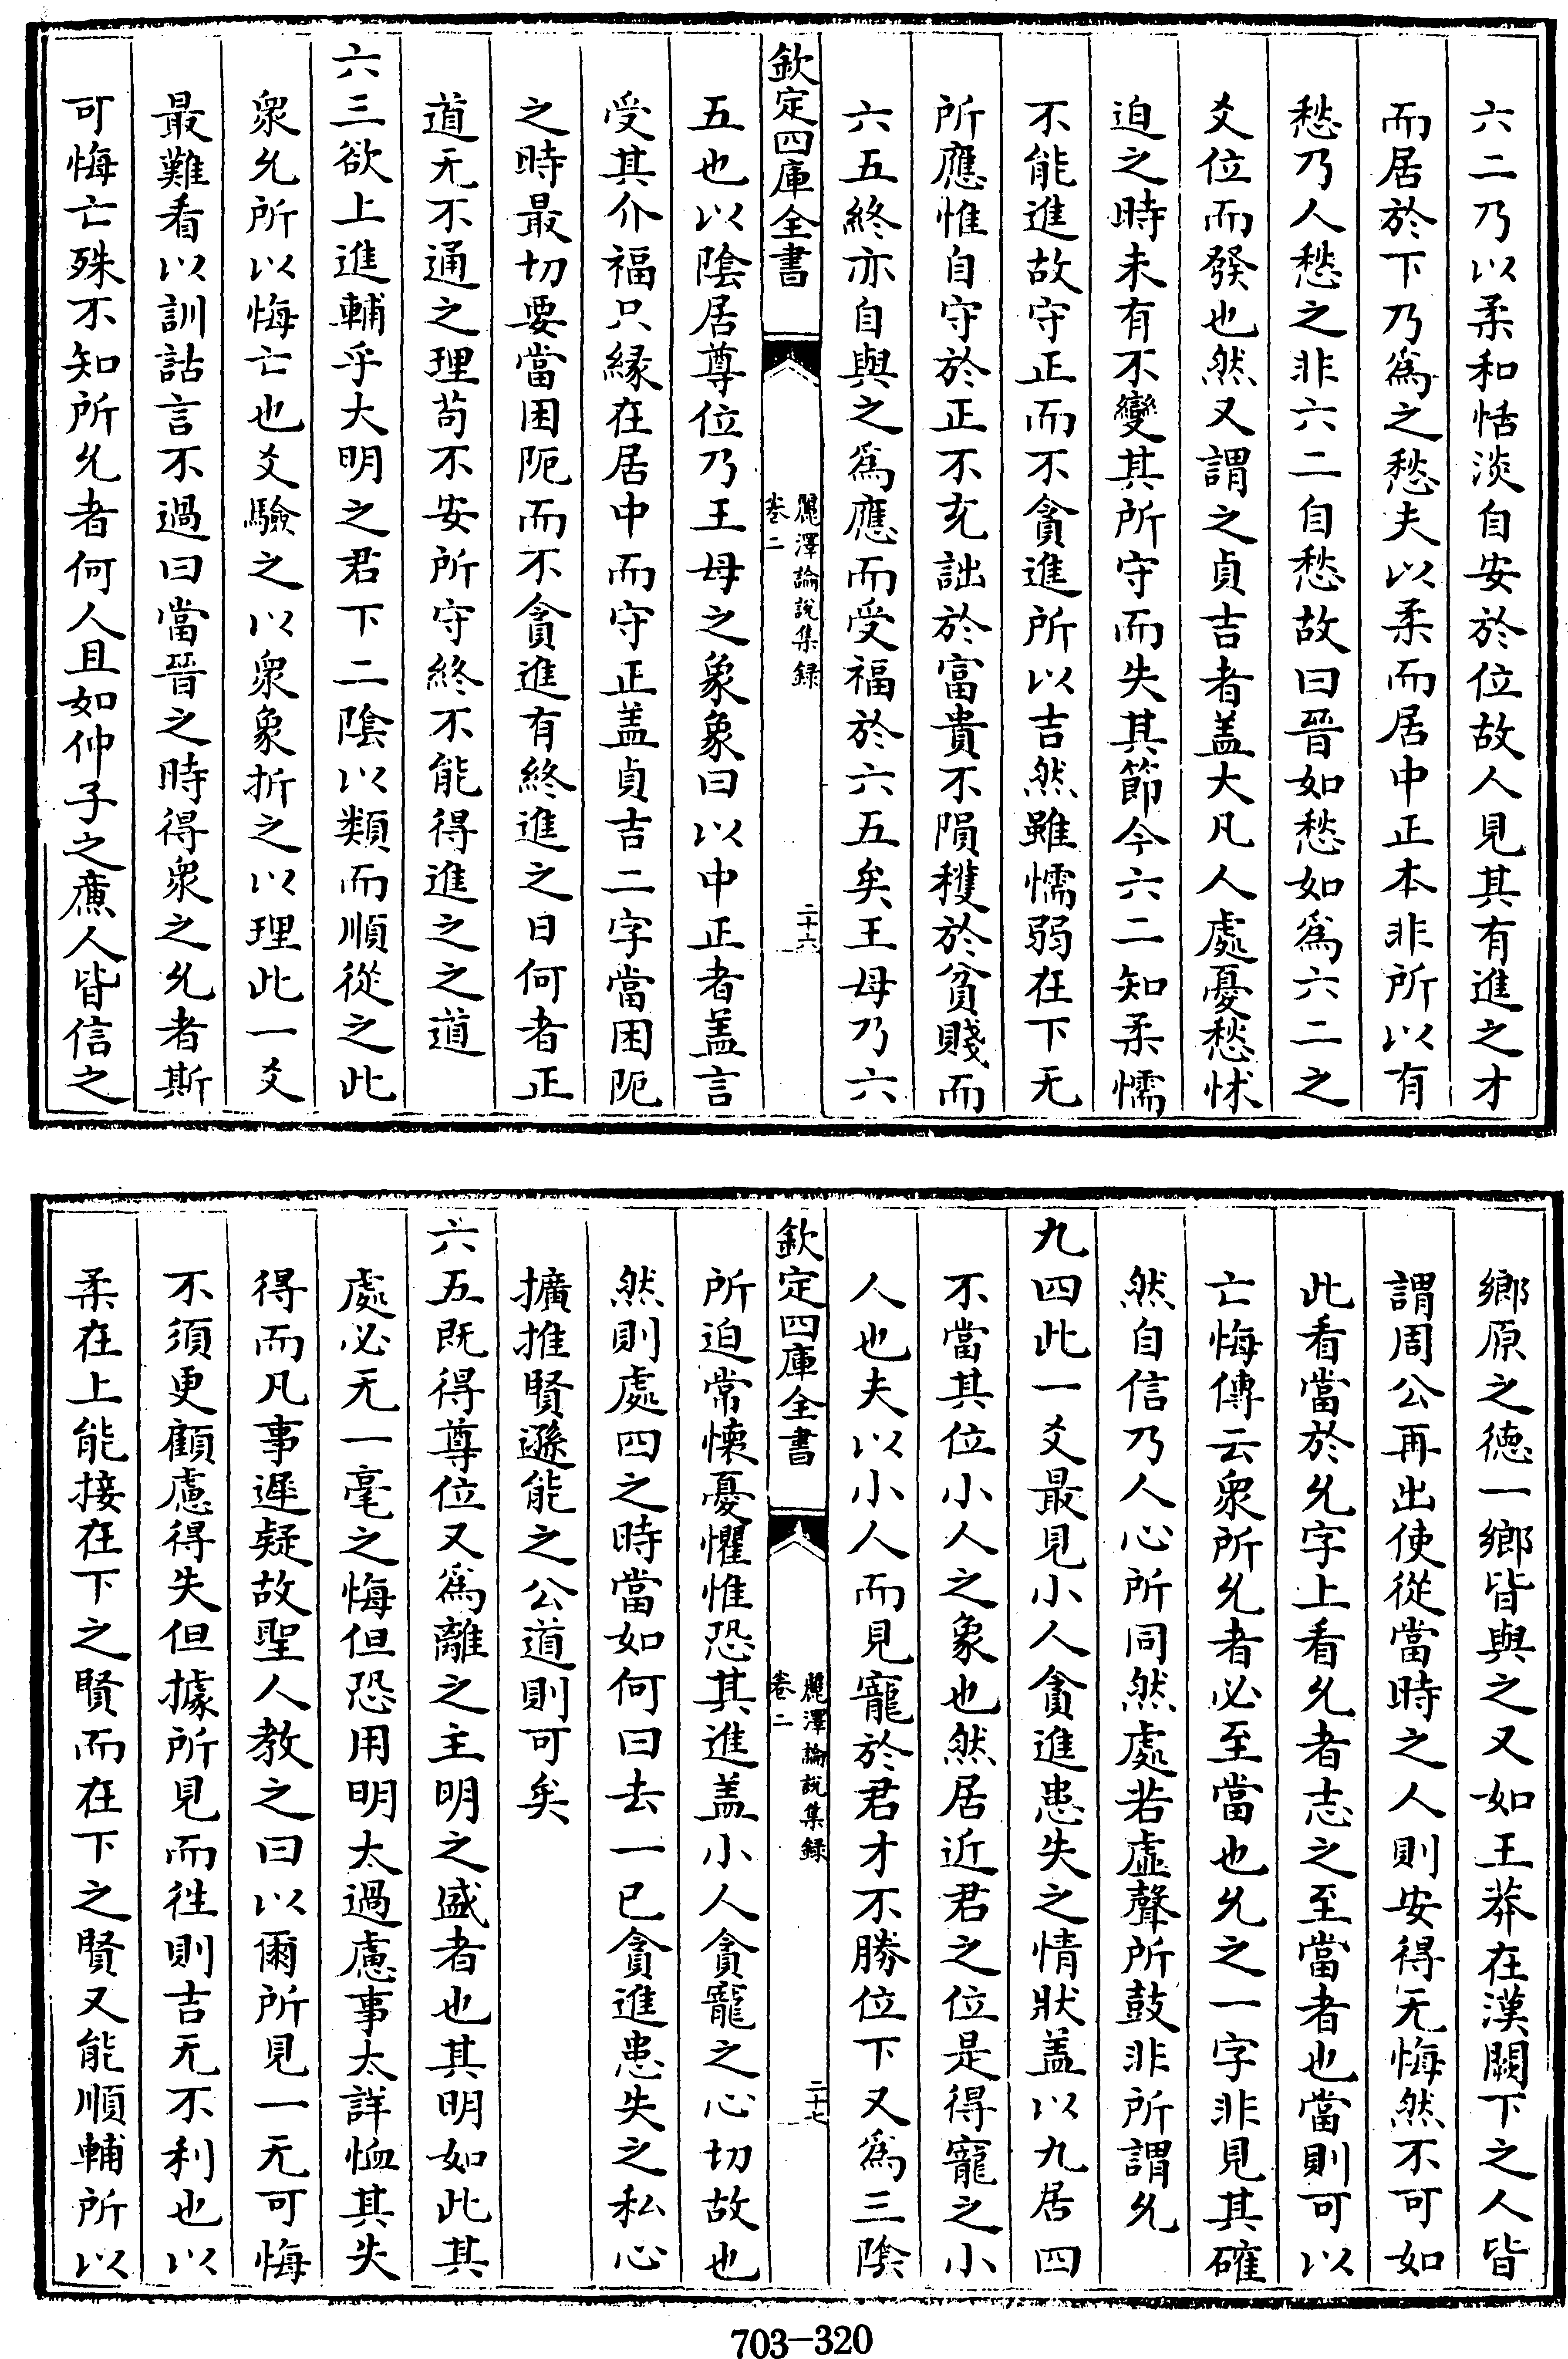 六二乃以柔和恬淡自安於位故人見其有進之才
而居於下乃為之愁夫以柔而居中正本非所以有
愁乃人愁之非六二自愁故曰晉如愁如為六二之
爻位而發也然又謂之貞吉者盖大凡人處憂愁怵
迫之時未有不變其所守而失其節今六二知柔懦
不能進故守正而不貪進所以吉然雖懦弱在下无
所應惟自守於正不充詘於富貴不隕穫於貧賤而
六五終亦自與之為應而受福於六五矣王母乃六
欽定四庫全書
麗澤論說集録
卷二
二十六
五也以陰居尊位乃王母之象象曰以中正者盖言
受其介福只縁在居中而守正盖貞吉二字當困阨
之時最切要當困阨而不貪進有終進之日何者正
道无不通之理苟不安所守終不能得進之之道
六三欲上進輔乎大明之君下二陰以類而順從之此
衆允所以悔亡也爻驗之以衆象折之以理此一爻
最難看以訓詁言不過曰當晉之時得衆之允者斯
可悔亡殊不知所允者何人且如仲子之廉人皆信之
鄉原之徳一鄉皆與之又如王莽在漢闕下之人皆
謂周公再出使從當時之人則安得无悔然不可如
此看當於允字上看允者志之至當者也當則可以
亡悔傳云衆所允者必至當也允之一字非見其確
然自信乃人心所同然處若虚聲所鼓非所謂允
九四此一爻最見小人貪進患失之情狀盖以九居四
不當其位小人之象也然居近君之位是得寵之小
人也夫以小人而見寵於君才不勝位下又為三陰
欽定四庫全書
麗澤論説集録
卷二
二十七
所迫常懐憂懼惟恐其進盖小人貪寵之心切故也
然則處四之時當如何曰去一已貪進患失之私心
擴推賢遜能之公道則可矣
六五既得尊位又為離之主明之盛者也其明如此其
處必无一毫之悔但恐用明太過慮事太詳恤其失
得而凡事遲疑故聖人教之曰以爾所見一无可悔
不須更顧慮得失但據所見而往則吉无不利也以
柔在上能接在下之賢而在下之賢又能順輔所以
703-320